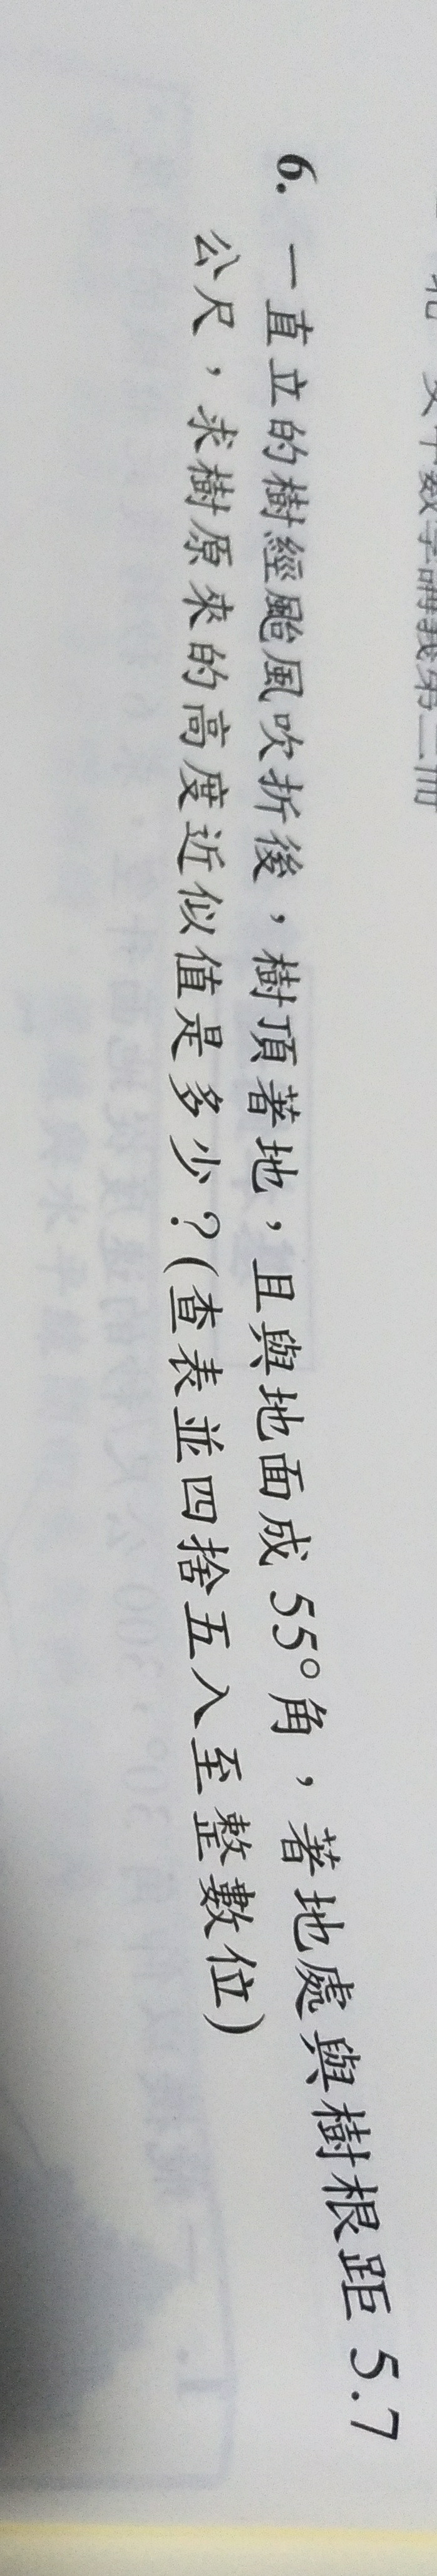 北一女中數學講義第二冊
6. 一直立的樹經颱風吹折後，樹頂著地，且與地面成 55°角，著地處與樹根距 5.7
公尺，求樹原來的高度近似值是多少？(查表並四捨五入至整數位)